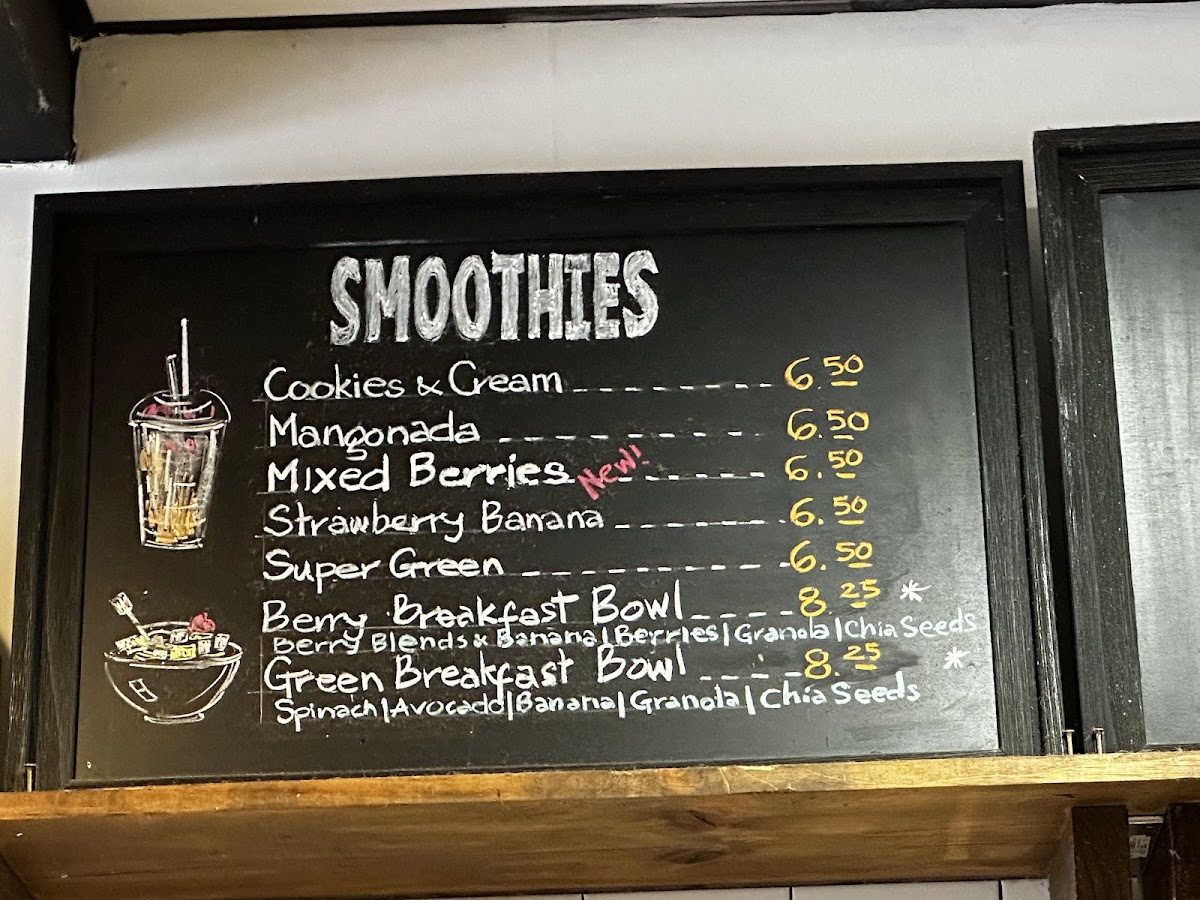 SMOOTHIES
Cookies & Cream 6.50
Mangonada 6.50
Mixed Berries New! 6.50
Strawberry Banana 6.50
Super Green 6.50
Berry Breakfast Bowl 8.25 *
Berry Blends & Banana | Berries | Granola | Chia Seeds
Green Breakfast Bowl 8.25 *
Spinach | Avocado | Banana | Granola | Chia Seeds